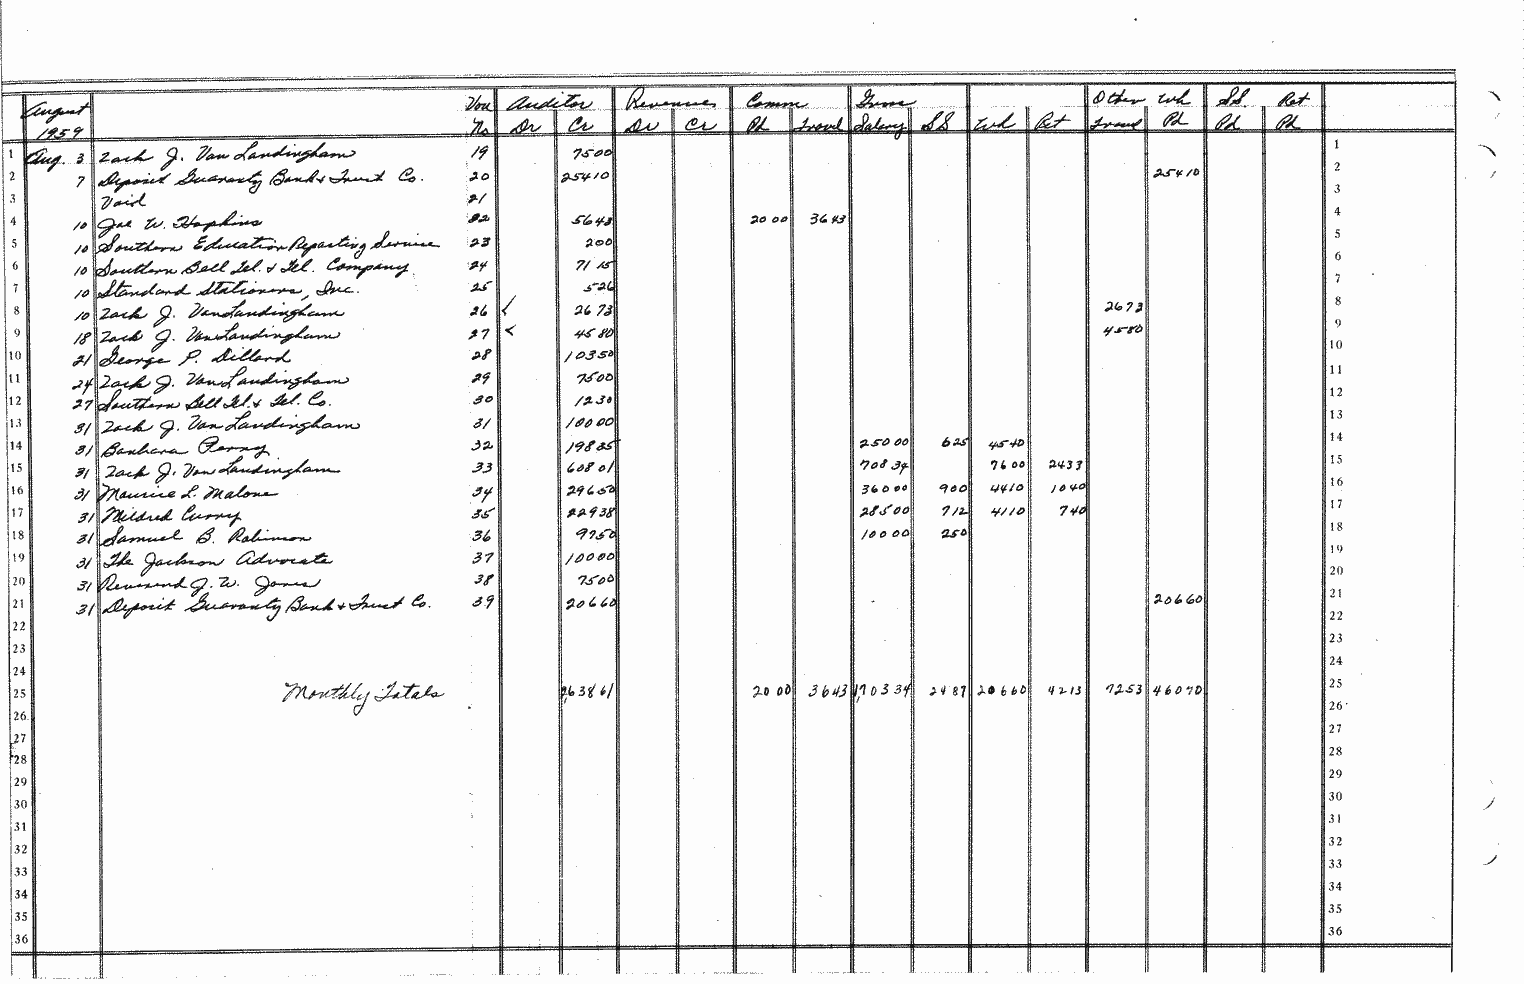 August Vou Auditor Revenues Comm Gross Other Wh SS Ret
1959 No Dr Cr Dr Cr Pd Travel Salary SS Wh Ret Travel Pd Pd Pd
1 Aug. 3 Zack J. Van Landingham 19 7500 1
2 7 Deposit Guaranty Bank & Trust Co. 20 25410 25410 2
3 Void 21 3
4 10 Joe W. Hopkins 22 5643 20 00 3643 4
5 10 Southern Education Reporting Service 23 200 5
6 10 Southern Bell Tel. & Tel. Company 24 71 15 6
7 10 Standard Stationers, Inc. 25 526 7
8 10 Zack J. VanLandingham 26 ✓ 26 73 2673 8
9 18 Zack J. VanLandingham 27 ✓ 45 80 4580 9
10 21 George P. Dillard 28 10350 10
11 24 Zack J. VanLandingham 29 7500 11
12 27 Southern Bell Tel. & Tel. Co. 30 1230 12
13 31 Zack J. Van Landingham 31 10000 13
14 31 Barbara Perry 32 19835 25000 625 4540 14
15 31 Zack J. Van Landingham 33 60801 70834 7600 2433 15
16 31 Maurice L. Malone 34 29650 36000 900 4410 1040 16
17 31 Mildred Curry 35 22938 28500 712 4110 740 17
18 31 Samuel B. Robinson 36 9750 10000 250 18
19 31 The Jackson Advocate 37 10000 19
20 31 Reverend J. W. Jones 38 7500 20
21 31 Deposit Guaranty Bank & Trust Co. 39 20660 20660 21
22 22
23 23
24 24
25 Monthly Totals 2,63861 20 00 3643 1,70334 2487 20660 4213 7253 46070 25
26 26
27 27
28 28
29 29
30 30
31 31
32 32
33 33
34 34
35 35
36 36